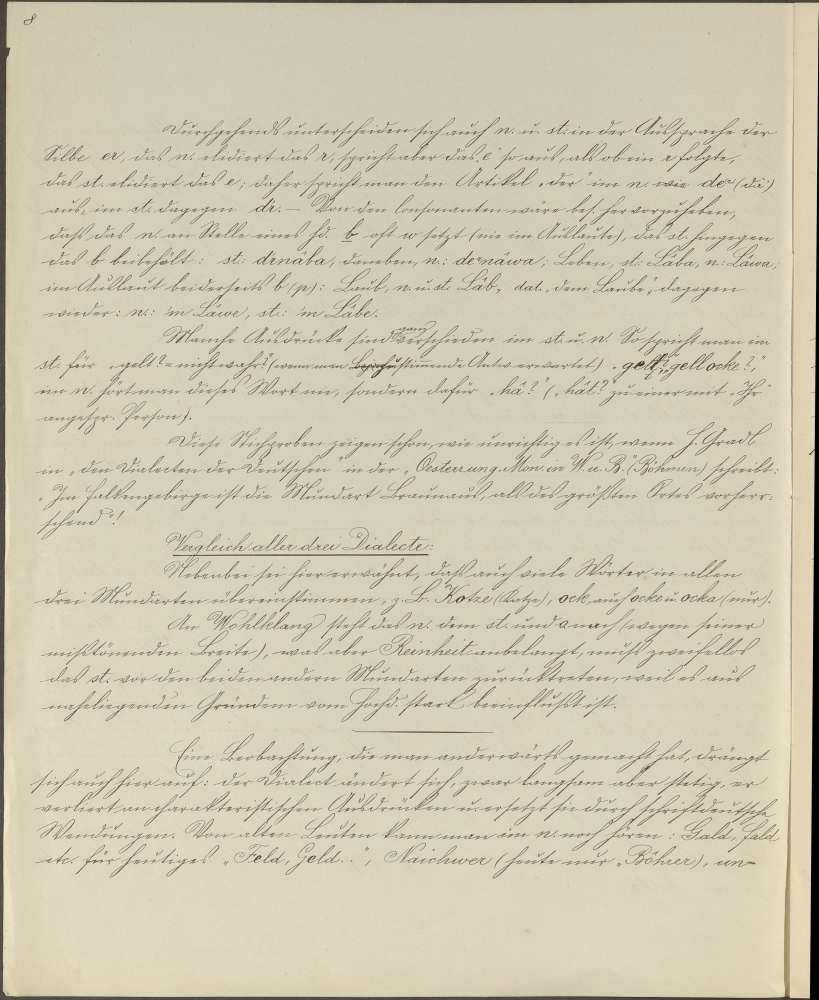 8
Durchgehends unterscheiden sich auch n. u. st. in der Aussprache der
Silbe er, das n. elidiert das r, spricht aber das „e" so aus, als ob ein r folgte,
das st. elidiert das e; daher spricht man den Artikel „der" im n. wie der (de)
aus, im st. dagegen dr. — Von den Consonanten wäre bes. hervorzuheben,
daß das n. an Stelle eines hd. b oft w setzt (nie im Auslaute), das st. hingegen
das b beibehält: st: drnäba, daneben, n.: dernäwa; Leben, st: Läba, n: Läwa;
im Auslaut beiderseits b (p): Laub, n. u. st: Lâb, dat. „dem Laube", dagegen
wieder: n.: 'm Lâwe, st.: 'm Lâbe.
Manche Ausdrücke sind ganz verschieden im st. u. n. So spricht man im
st. für „gelt? = nicht wahr?" (wenn man zustimmende Antw. erwartet) „gell?", gell ocke?",
im n. hört man dieses Wort nie, sondern dafür „hä?" („hät?" zu einer mit „Ihr"
angespr. Person).
Diese Stichproben zeigen schon, wie unrichtig es ist, wenn H. Gradl
in „den Dialecten der Deutschen" in der „Oesterr. ung. Mon. in W. u. B." (Böhmen) schreibt:
„Im Falkengebirge ist die Mundart Braunaus, als des größten Ortes vorherr-
schend"!
Vergleich aller drei Dialecte:
Nebenbei sei hier erwähnt, daß auch viele Wörter in allen
drei Mundarten übereinstimmen, z. B. Kotze (Katze), ock, auch ocke u. ocka (nur).
An Wohlklang steht das n. dem st. und a nach (wegen seiner
mißtönenden Breite), was aber Reinheit anbelangt, muß zweifellos
das st. vor den beiden andern Mundarten zurücktreten, weil es aus
naheliegenden Gründen vom Hochd. stark beeinflußt ist.
Eine Beobachtung, die man anderwärts gemacht hat, drängt
sich auch hier auf: der Dialect ändert sich, zwar langsam aber stetig, er
verliert an charakteristischen Ausdrücken u. ersetzt sie durch schriftdeutsche
Wendungen. Von alten Leuten kann man im n. noch hören: Gald, Fald
etc. für heutiges „Feld, Geld..", Naichwer (heute nur „Böhrer), un-